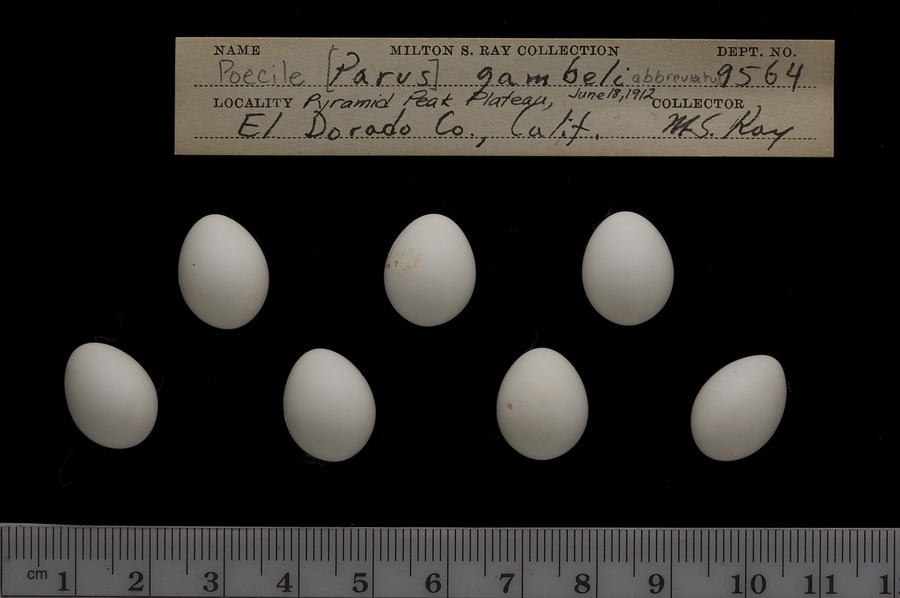 NAME MILTON S. RAY COLLECTION DEPT. NO.
Poecile [Parus] gambeli abbreviatus 9564
LOCALITY Pyramid Peak Plateau, June 18, 1912 COLLECTOR
El Dorado Co., Calif. M.S. Ray
cm 1 2 3 4 5 6 7 8 9 10 11 1